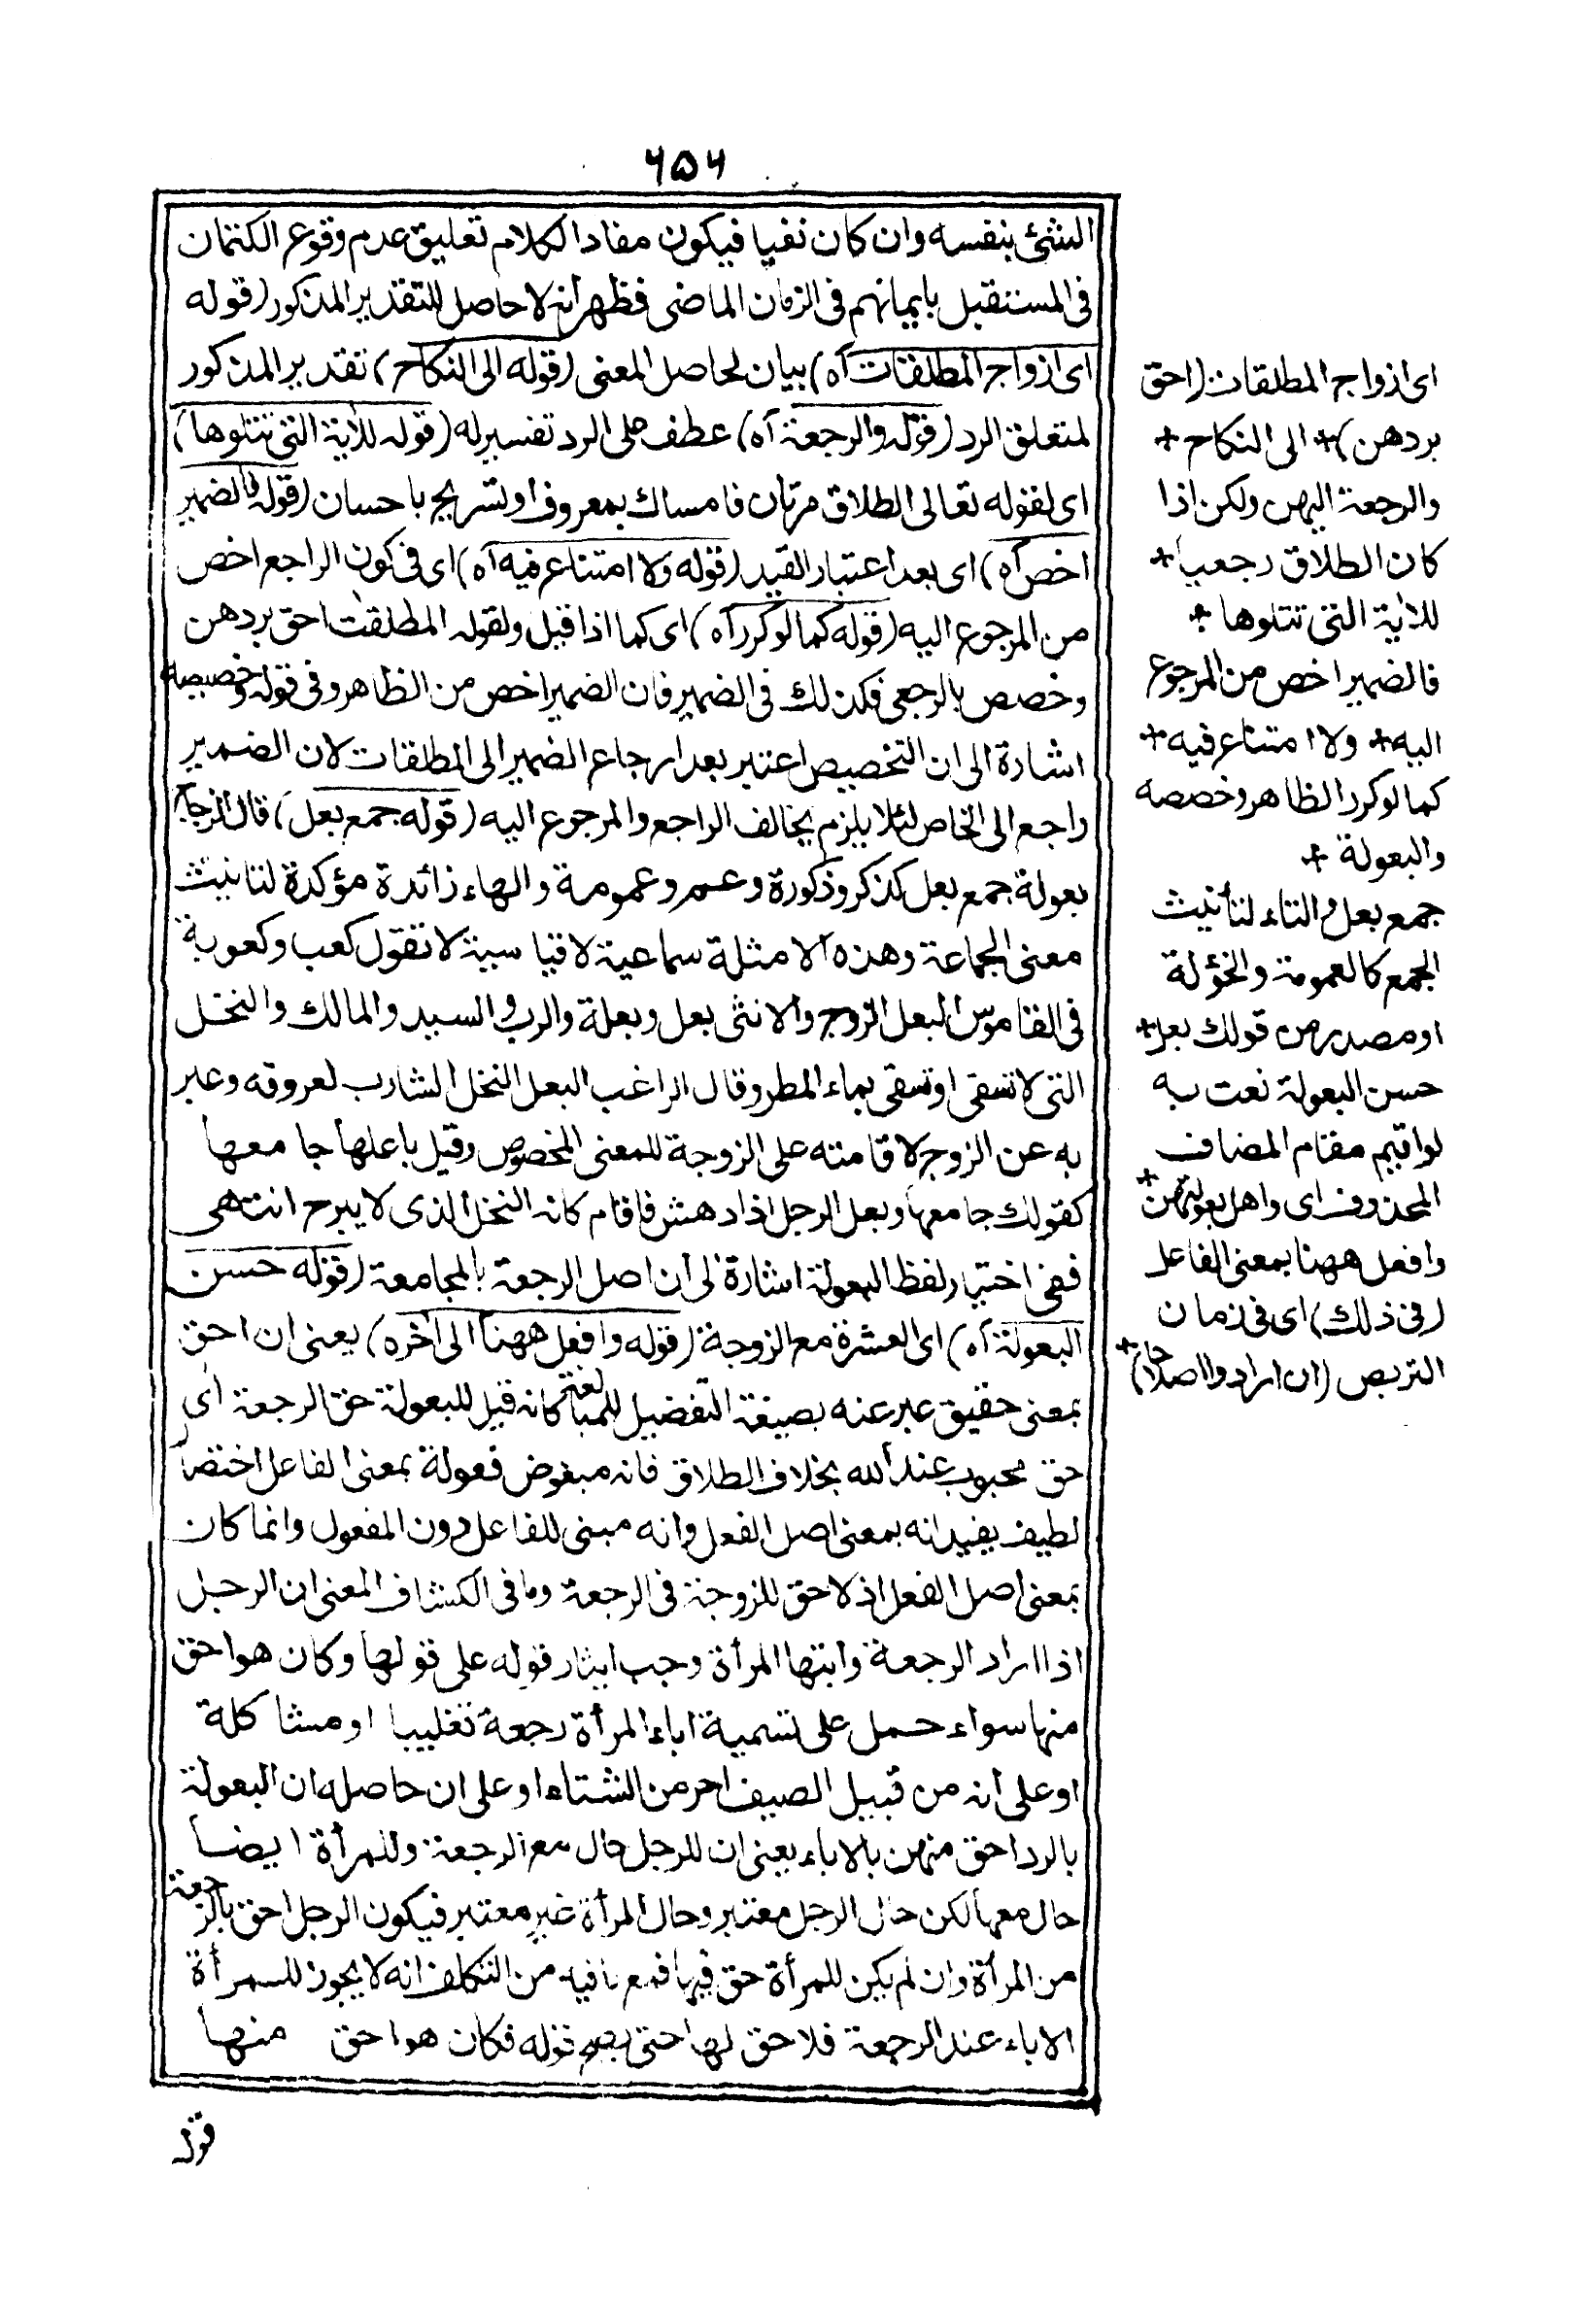 ٦٥٦
الشئ بنفسه وان كان نفيا فيكون مفاد الكلام تعليق عدم وقوع الكتمان
فى المستقبل بايمانهم فى الزمان الماضى فظهر انه لا حاصل للتقدير المذكور (قوله
اى ازواج المطلقات آه) بيان لحاصل المعنى (قوله الى النكاح) تقدير المذكور
لمتعلق الرد (قوله والرجعة آه) عطف على الرد تفسير له (قوله للآية التى تتلوها)
اى لقوله تعالى الطلاق مرتان فامساك بمعروف او تسريح باحسان (قوله فالضمير
اخص آه) اى بعد اعتبار القيد (قوله ولا امتناع فيه آه) اى فى كون الراجع اخص
من المرجوع اليه (قوله كما لو كرر آه) اى كما اذا قيل ولقوله المطلقت احق بردهن
وخصص بالرجعى فكذلك فى الضمير فان الضمير اخص من الظاهر وفى قوله وخصيصه
اشارة الى ان التخصيص اعتبر بعد ارجاع الضمير الى المطلقات لان الضمير
راجع الى الخاص لئلا يلزم تخالف الراجع والمرجوع اليه (قوله جمع بعل) قال الزجاج
بعولة جمع بعل كذكر وذكورة وعم وعمومة والهاء زائدة مؤكدة لتانيث
معنى الجماعة وهذه الامثلة سماعية لا قياسية لا تقول كعب وكعوبة
فى القاموس البعل الزوج والانثى بعل وبعلة والرب والسيد والمالك والنخل
التى لا تسقى او تسقى بماء المطر وقال الراغب البعل النخل الشارب لعروقه وعبر
به عن الزوج لاقامته على الزوجة للمعنى المخصوص وقيل باعلها جامعها
كقولك جامعها وبعل الرجل اذا دهش فاقام كانه النخل الذى لا يبرح انتهى
ففى اختيار لفظ البعولة اشارة الى ان اصل الرجعة بالمجامعة (قوله حسن
البعولة آه) اى العشرة مع الزوجة (قوله وافعل ههنا الى آخره) يعنى ان احق
بمعنى حقيق عبر عنه بصيغة التفضيل للمبالغة كانه قيل للبعولة حق الرجعة اى
حق محبوب عند الله بخلاف الطلاق فانه مبغوض فعولة بمعنى الفاعل اختصار
لطيف يفيد انه بمعنى اصل الفعل وانه مبنى للفاعل دون المفعول وانما كان
بمعنى اصل الفعل اذ لا حق للزوجة فى الرجعة وما فى الكشاف المعنى ان الرجل
اذا اراد الرجعة وابتها المرأة وجب ايثار قوله على قولها وكان هو احق
منها سواء حمل على تسمية اباء المرأة رجعة تغليبا او مشاكلة
او على انه من قبيل الصيف احر من الشتاء او على ان حاصله ان البعولة
بالرد احق منهن بالاباء يعنى ان للرجل حال مع الرجعة وللمرأة ايضا
حال معها لكن حال الرجل معتبر وحال المرأة غير معتبر فيكون الرجل احق بالرجعة
من المرأة وان لم يكن للمرأة حق فيها فمع ما فيه من التكلف انه لا يجوز للمرأة
الاباء عند الرجعة فلا حق لها حتى يصح قوله فكان هو احق منها
قوله
اى ازواج المطلقات (احق
بردهن)* الى النكاح *
والرجعة اليهن ولكن اذا
كان الطلاق رجعيا *
للآية التى تتلوها *
فالضمير اخص من المرجوع
اليه * ولا امتناع فيه *
كما لو كرر الظاهر وخصصه
والبعولة *
جمع بعل والتاء لتأنيث
الجمع كالعمومة والخؤلة
او مصدر من قولك بعل *
حسن البعولة نعت به
لو اقيم مقام المضاف
المحذوف اى واهل بعولتهن *
وافعل ههنا بمعنى الفاعل
(فى ذلك) اى فى زمان
التربص (ان ارادوا اصلاحا) *